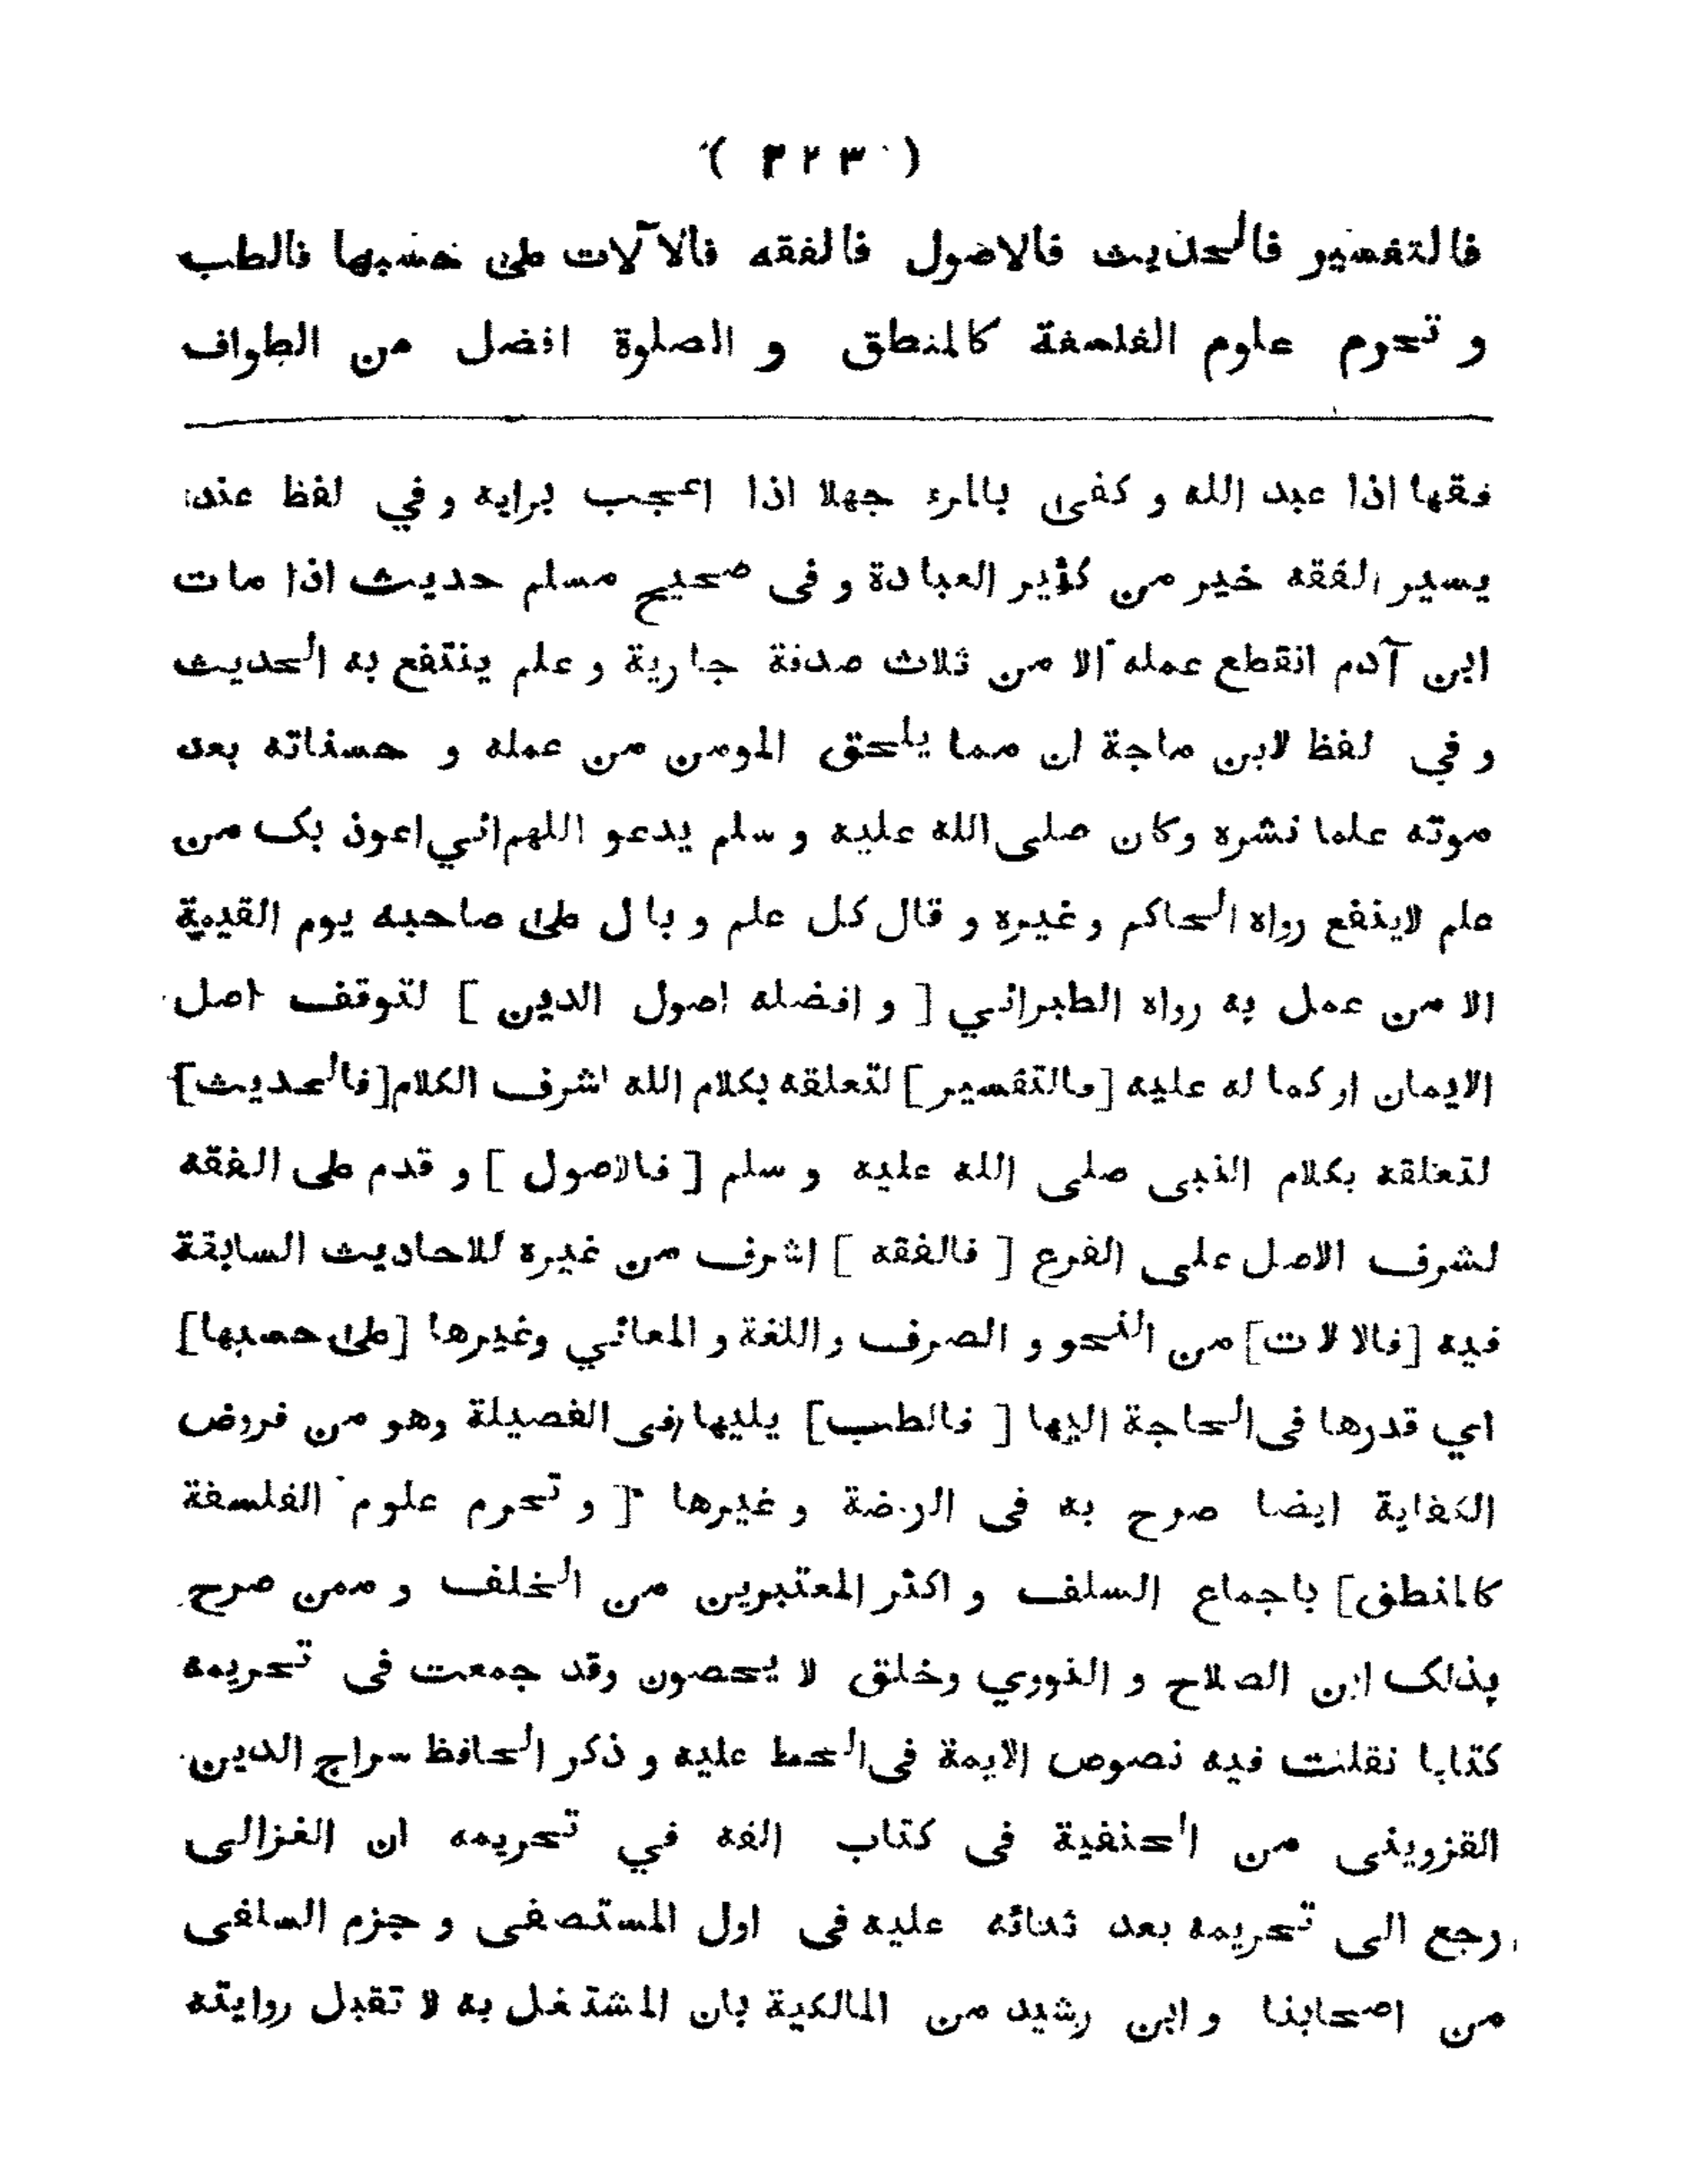 ( ٣٢٣ )
فالتفسير فالحديث فالاصول فالفقه فالآلات على حسبها فالطب
و تحرم علوم الفلسفة كالمنطق و الصلوة افضل من الطواف
فقها اذا عبد الله و كفى بالمرء جهلا اذا اعجب برايه و في لفظ عنده
يسير الفقه خير من كثير العبادة و فى صحيح مسلم حديث اذا مات
ابن آدم انقطع عمله الا من ثلاث صدقة جارية و علم ينتفع به الحديث
و في لفظ لابن ماجة ان مما يلحق المومن من عمله و حسناته بعد
موته علما نشره وكان صلى الله عليه و سلم يدعو اللهم اني اعوذ بك من
علم لاينفع رواه الحاكم و غيره و قال كل علم و بال على صاحبه يوم القيمة
الا من عمل به رواه الطبراني [ و افضله اصول الدين ] لتوقف اصل
الايمان او كما له عليه [فالتفسير] لتعلقه بكلام الله اشرف الكلام [فالحديث]
لتعلقه بكلام النبى صلى الله عليه و سلم [ فالاصول ] و قدم على الفقه
لشرف الاصل على الفرع [ فالفقه ] اشرف من غيره للاحاديث السابقة
فيه [فالالات] من النحو و الصرف و اللغة و المعاني وغيرها [على حسبها]
اي قدرها فى الحاجة اليها [ فالطب] يليها فى الفضيلة وهو من فروض
الكفاية ايضا صرح به فى الروضة و غيرها [ و تحرم علوم الفلسفة
كالمنطق] باجماع السلف و اكثر المعتبرين من الخلف و ممن صرح
بذلك ابن الصلاح و النووي وخلق لا يحصون وقد جمعت فى تحريمه
كتابا نقلت فيه نصوص الايمة فى الحط عليه و ذكر الحافظ سراج الدين
القزوينى من الحنفية فى كتاب الفه في تحريمه ان الغزالى
رجع الى تحريمه بعد ثنائه عليه فى اول المستصفى و جزم السلفى
من اصحابنا و ابن رشيد من المالكية بان المشتغل به لا تقبل روايته